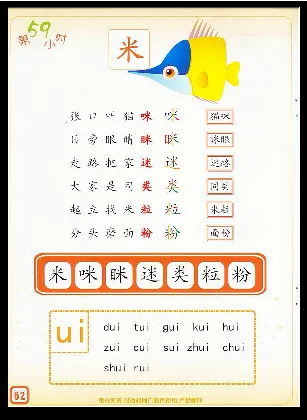 第59小时
米
张口叫猫咪 咪 猫咪
目旁眼睛眯 眯 眯眼
走路把家迷 迷 迷路
大家是同类 类 同类
起立找米粒 粒 米粒
分头磨面粉 粉 面粉
米咪眯迷类粒粉
ui
dui tui gui kui hui
zui cui sui zhui chui
shui rui
62